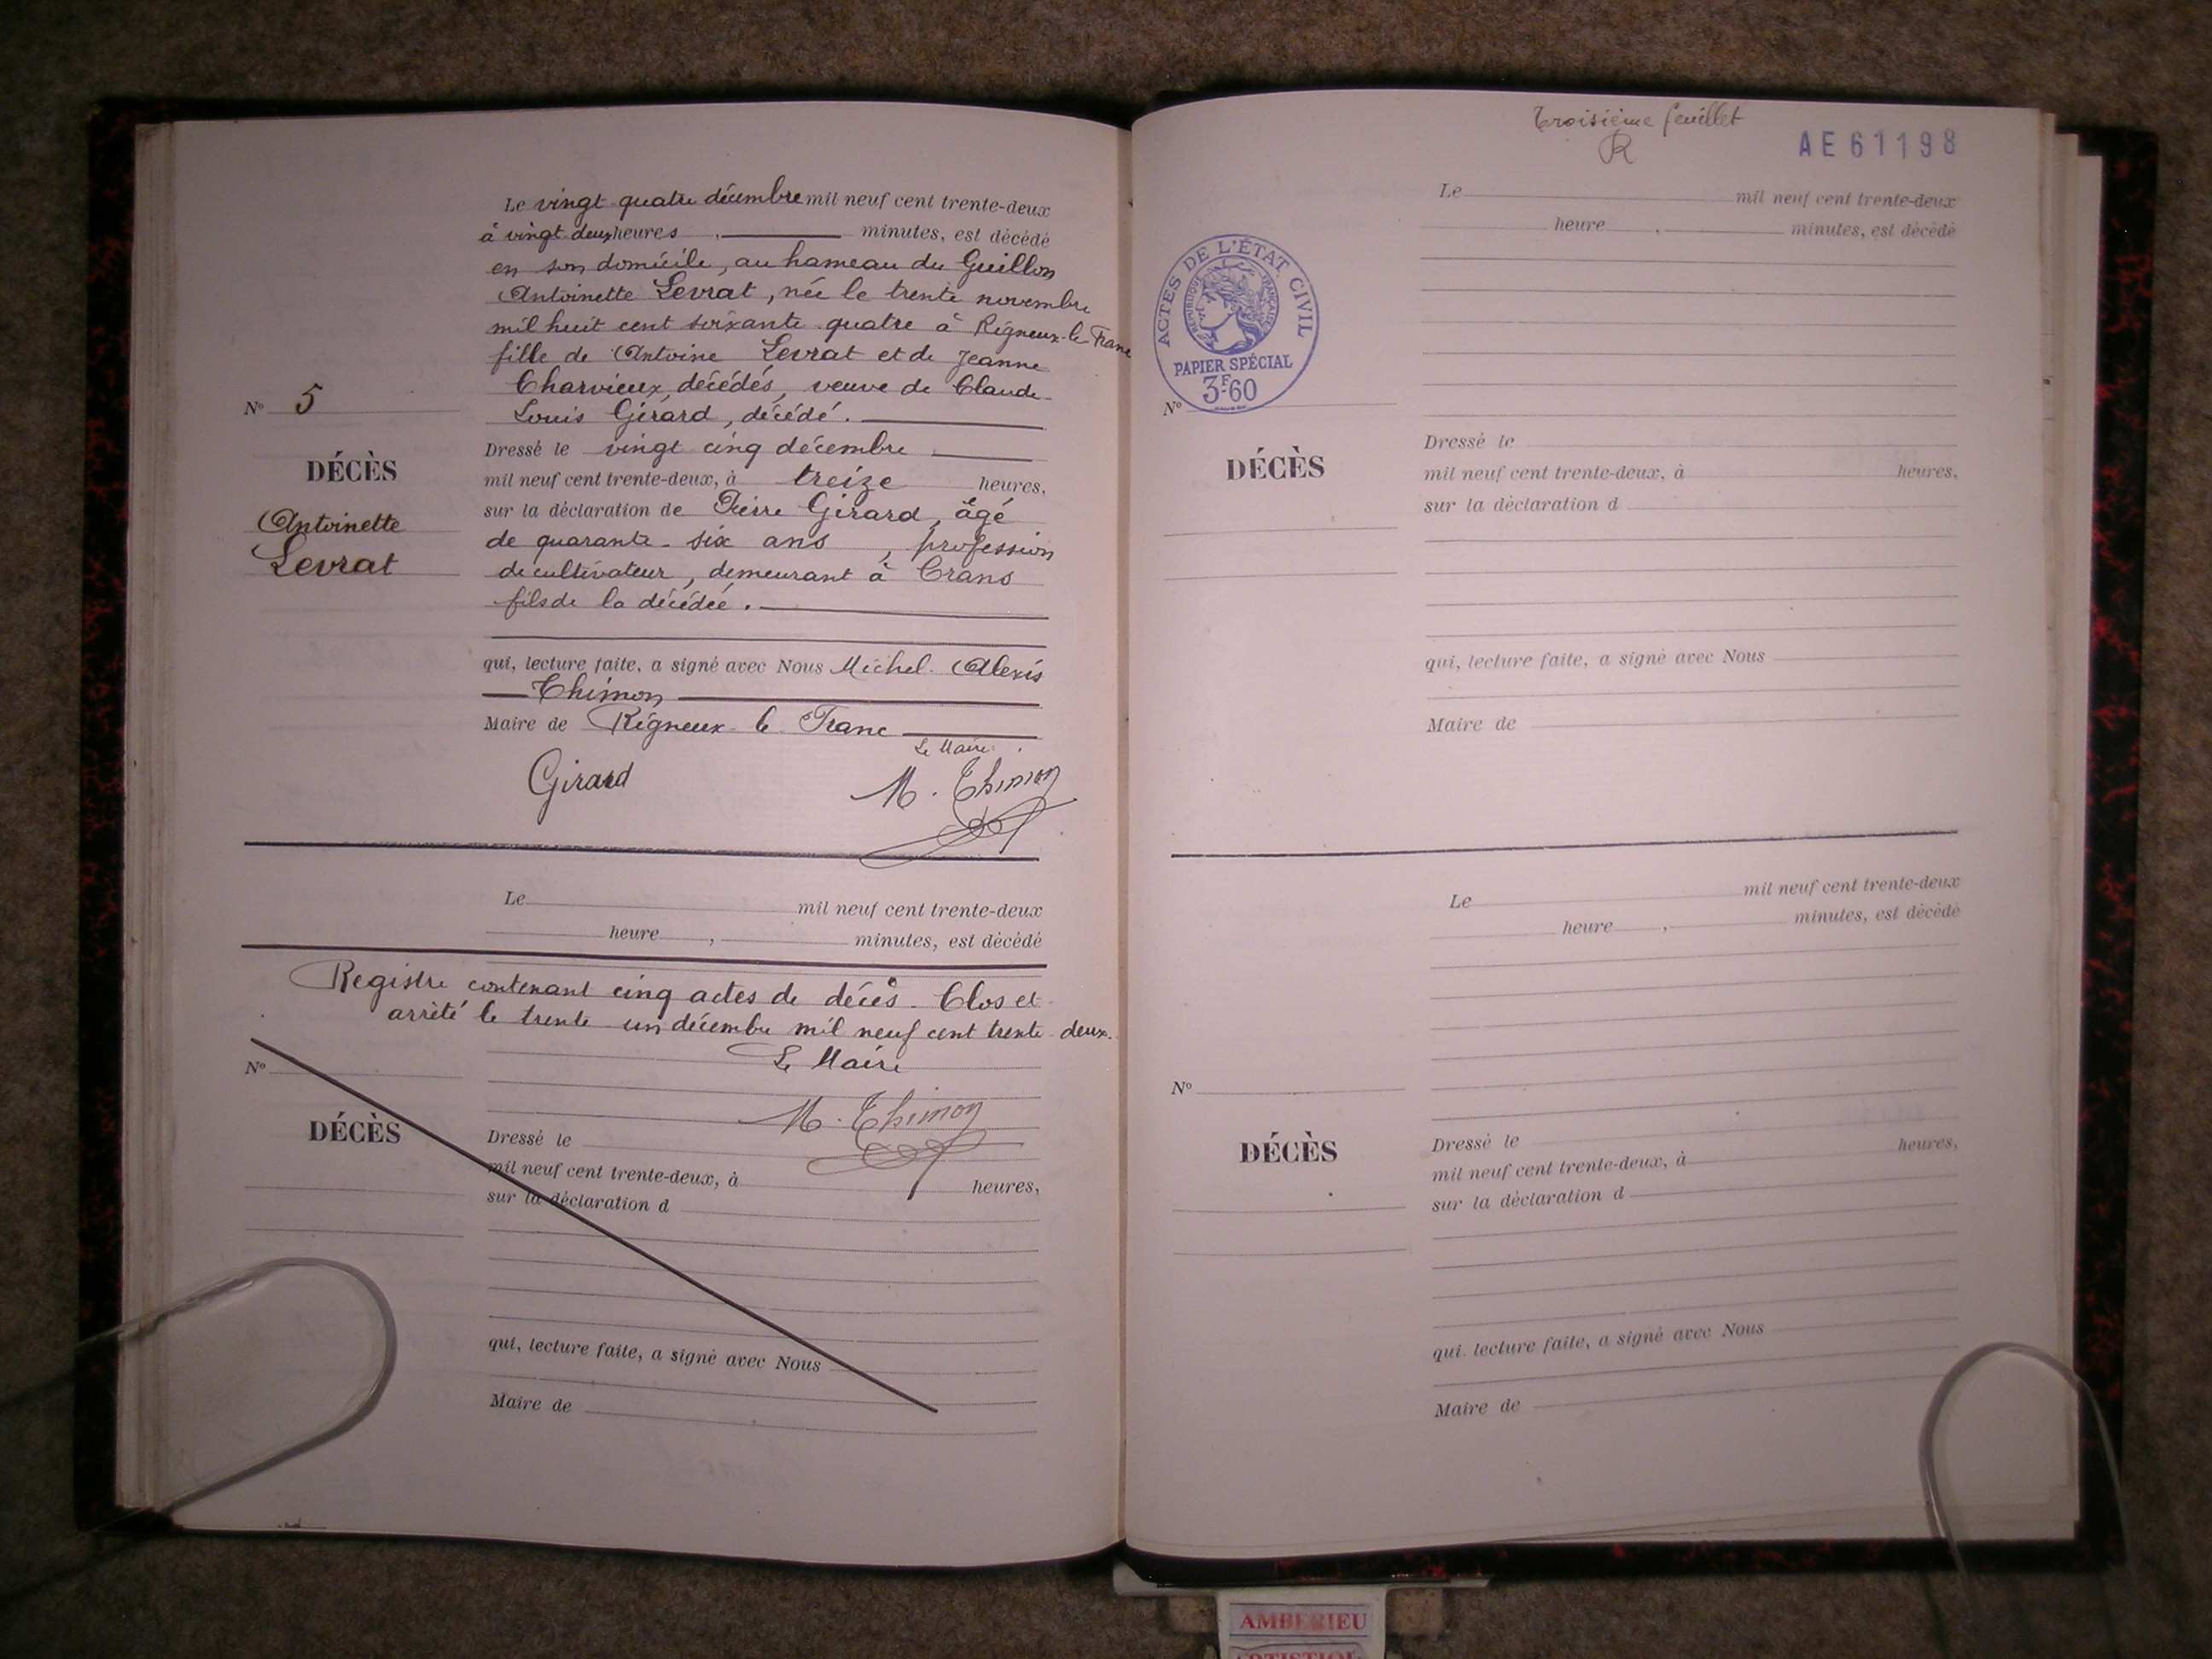 Le vingt quatre décembre mil neuf cent trente-deux
à vingt deux heures , minutes, est décédé
en son domicile, au hameau du Guillon
Antoinette Levrat, née le trente novembre
mil huit cent soixante quatre à Rigneux-le-Franc
fille de Antoine Levrat et de Jeanne
Charvieux, décédés, veuve de Claude-
Louis Girard, décédé.
Nº 5
DÉCÈS
Antoinette
Levrat
Dressé le vingt cinq décembre
mil neuf cent trente-deux, à treize heures,
sur la déclaration de Pierre Girard, âgé
de quarante-six ans, profession
de cultivateur, demeurant à Crans
fils de la décédée.
qui, lecture faite, a signé avec Nous Michel Alexis
Thimon
Maire de Rigneux le Franc
Le Maire
Girard
M. Thimon
Le mil neuf cent trente-deux
heure , minutes, est décédé
Registre contenant cinq actes de décès. Clos et
arrêté le trente un décembre mil neuf cent trente-deux.
Le Maire
M. Thimon
Nº
DÉCÈS
Dressé le
mil neuf cent trente-deux, à heures,
sur la déclaration d
qui, lecture faite, a signé avec Nous
Maire de
Troisième feuillet
R
AE 61198
Le mil neuf cent trente-deux
heure , minutes, est décédé
ACTES DE L'ÉTAT CIVIL
RÉPUBLIQUE FRANÇAISE
PAPIER SPÉCIAL
3F60
Nº
DÉCÈS
Dressé le
mil neuf cent trente-deux, à heures,
sur la déclaration d
qui, lecture faite, a signé avec Nous
Maire de
Le mil neuf cent trente-deux
heure , minutes, est décédé
Nº
DÉCÈS
Dressé le
mil neuf cent trente-deux, à heures,
sur la déclaration d
qui, lecture faite, a signé avec Nous
Maire de
AMBERIEU